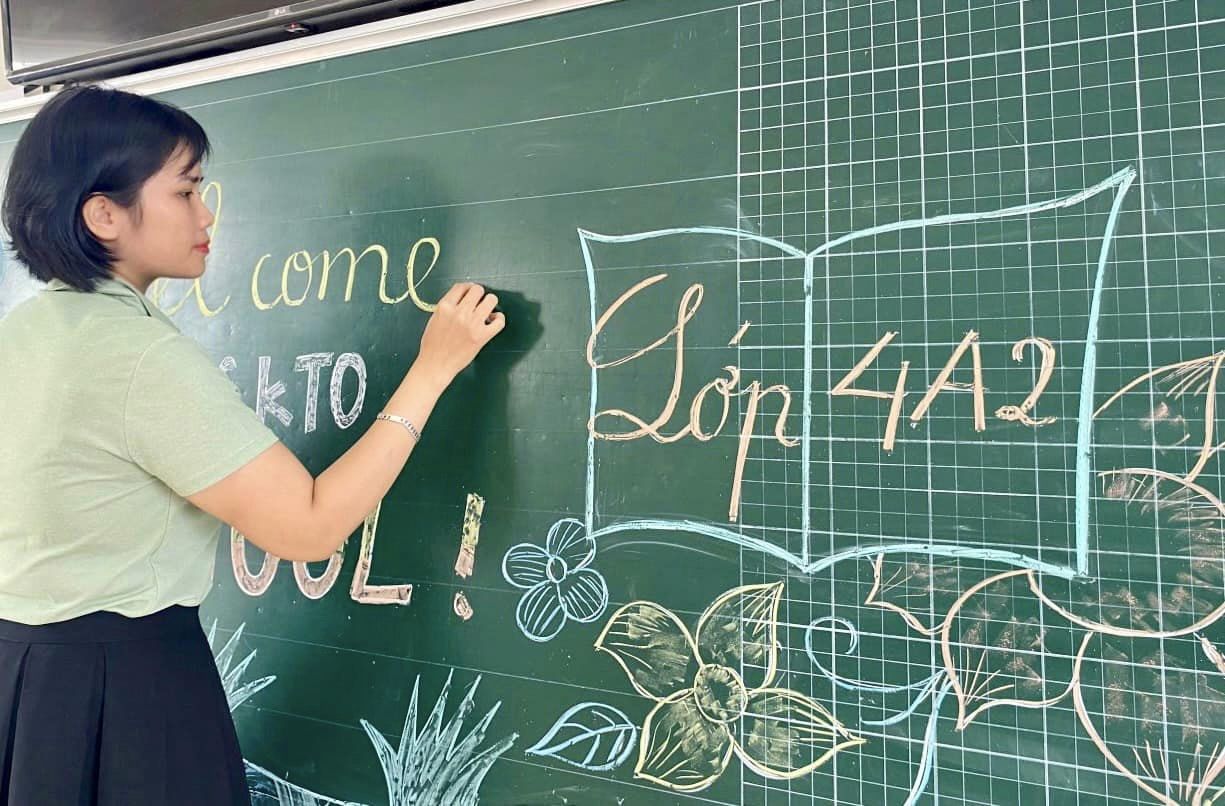 el come
ckTO
OOL !
Lớp 4A2